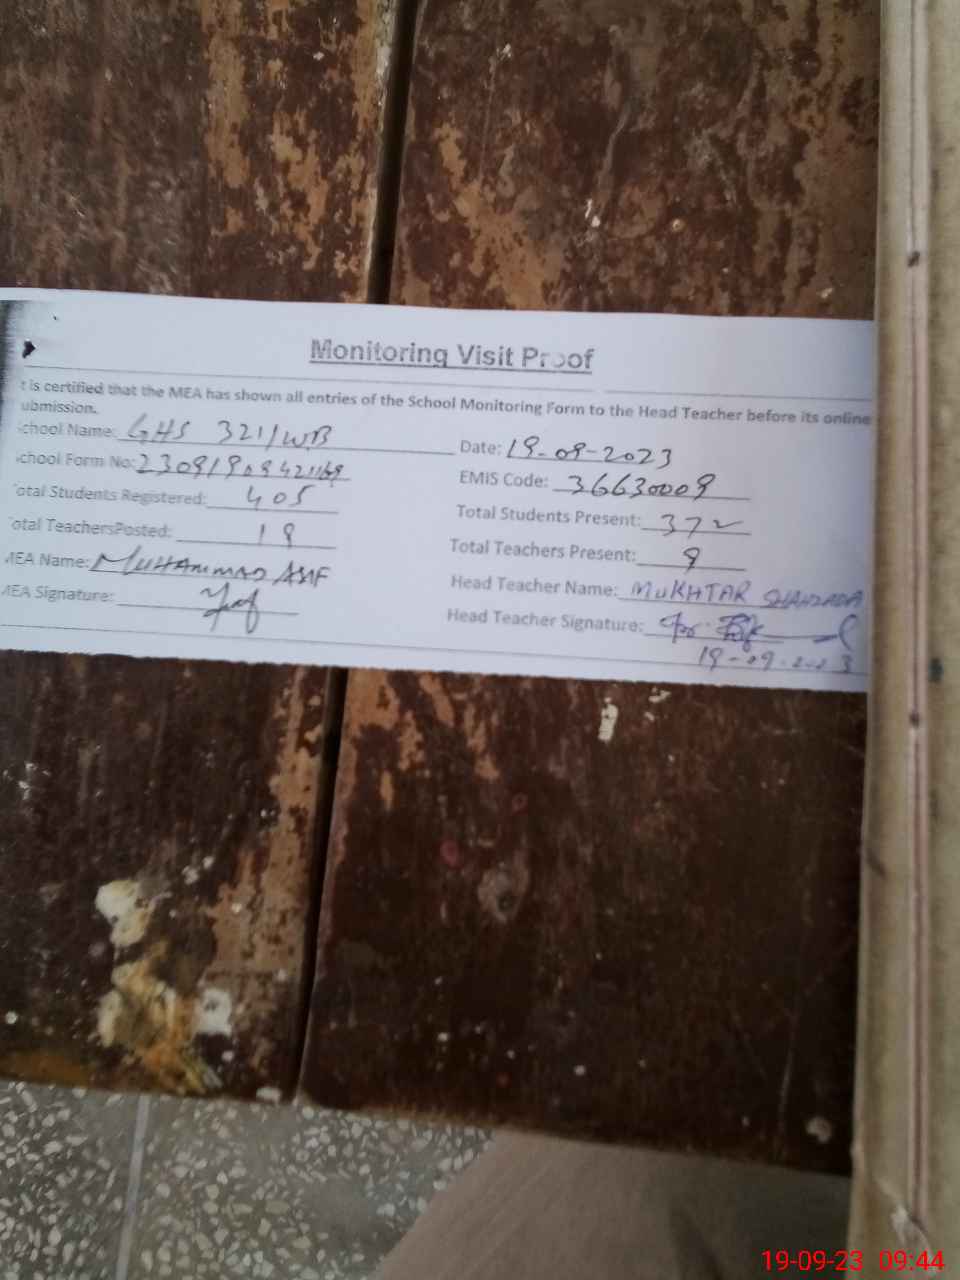 Monitoring Visit Proof
t is certified that the MEA has shown all entries of the School Monitoring Form to the Head Teacher before its online
ubmission.
chool Name: GHS 321/WB Date: 19-09-2023
chool Form No: EMIS Code: 36630009
otal Students Registered: 405 Total Students Present: 372
otal TeachersPosted: Total Teachers Present: 9
MEA Name: MUHAMMAD ASIF Head Teacher Name: MUKHTAR SHAHZADA
MEA Signature: Head Teacher Signature:
19-09-2023
19-09-23 09:44